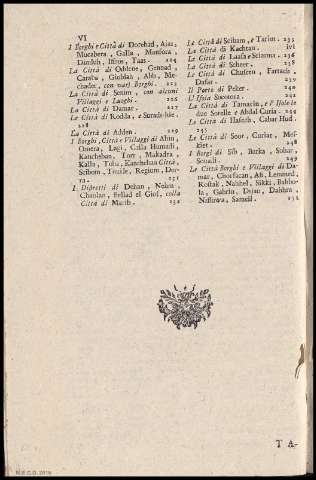 VI
I Borghi e Città di Dorebad, Ajaz,
Mucabera, Galla, Monfora,
Dimluh, Iffros, Taas. 224
La Città di Oddene, Genoad,
Carafu, Giobláh, Abb, Me-
chader, con varj Borghi. 225
La Città di Senim, con alcuni
Villaggi e Luoghi. 226
La Città di Damar. 227
La Città di Rodda, e Suradshie.
228
La Città di Adden. 229
I Borghi, Città e Villaggi di Abin,
Omera, Lagi, Calla Humadi,
Kancheban, Torr, Makadra,
Kallo, Tuba, Kancheban Città,
Scibom, Tessile, Regium,
231
I Distretti di Dehan, Nehm,
Chaulan, Beflad el Giof, colla
Città di Mareb. 232
Le Città di Scibam, e Tarim. 235
La Città di Kachtan. ivi
Le Città di Laasa e Sciarma. 236
La Città di Scheer. 238
Le Città di Chusein, Fartach,
Dafar. 239
Il Porto di Pekar. 240
L'Isola Socotora. 242
La Città di Tamarin, e l' Isole le
due Sorelle e Abdal Curia. 244
Le Città di Haseth, Capo Hud.
245
Le Città di Soor, Curiat, Mas-
kiet. 248
I Borgi di Sib, Barka, Sohar,
Souadi. 249
Le Città Borghi e Villaggi di Da-
mar, Chorfacan, Asi, Lemond,
Rostak, Nahhel, Sikki, Bahho-
la, Gabrin, Dsjan, Dahhra,
Nassuwa, Samaïl. 252
T A-